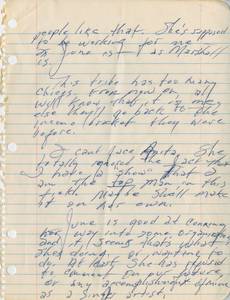 people like that. She's supposed
to be working for me
is June is — as Marshall
is.
This tribe has too many
chiefs. From now on all
will know that it is me
else they'll go back to the
income bracket they were
before.
I can't face Anita. She
totally ignored the fact that
I have a show that I
am the top man in this
world. Maybe She'll make
it on her own.
June is good at conning
her way into some organization
and it seems that's what
she's doing, or wanting to
do. At that She has yet
to comment on our future
or any accomplishment of mine
as a single artist,